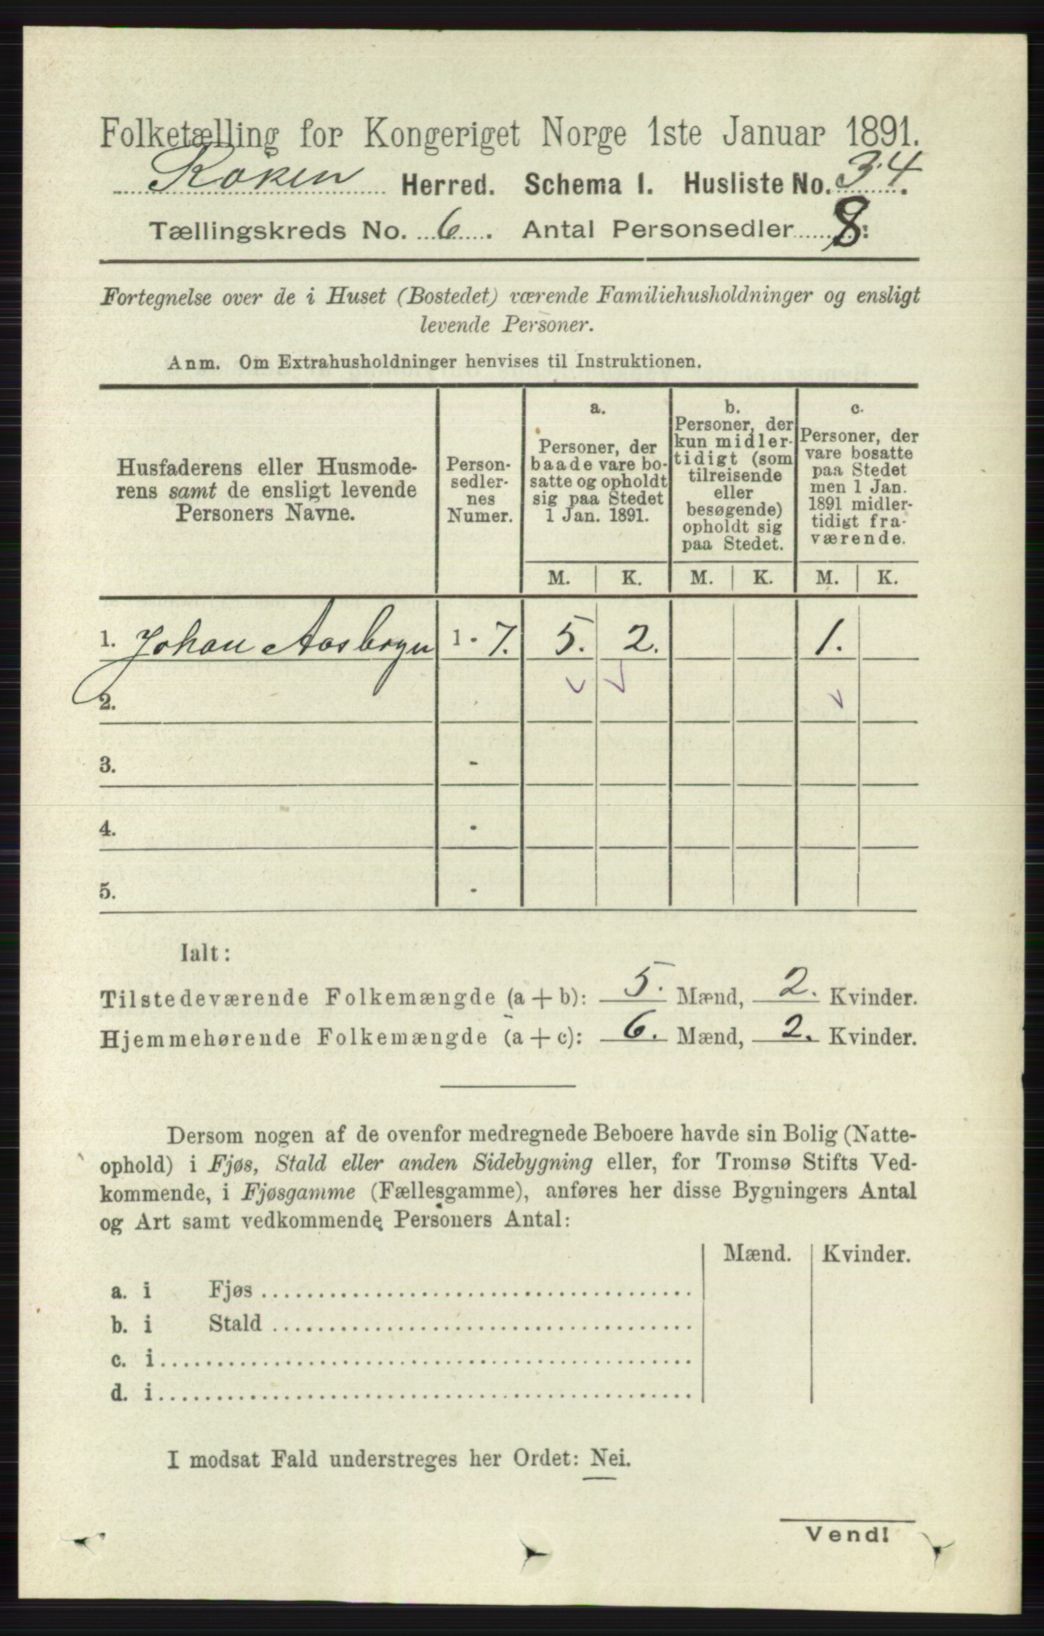 Folketælling for Kongeriget Norge 1ste Januar 1891.
Røken Herred. Schema I. Husliste No. 34.
Tællingskreds No. 6. Antal Personsedler 8:
Fortegnelse over de i Huset (Bostedet) værende Familiehusholdninger og ensligt
levende Personer.
Anm. Om Extrahusholdninger henvises til Instruktionen.
Husfaderens eller Husmode-
rens samt de ensligt levende
Personers Navne.
Person-
sedler-
nes
Numer.
a.
Personer, der
baade vare bo-
satte og opholdt
sig paa Stedet
1 Jan. 1891.
b.
Personer, der
kun midler-
tidigt (som
tilreisende
eller
besøgende)
opholdt sig
paa Stedet.
c.
Personer, der
vare bosatte
paa Stedet
men 1 Jan.
1891 midler-
tidigt fra-
værende.
M. K. M. K. M. K.
1. Johan 1 - 7. 5. 2. 1.
2.
3. -
4. -
5. -
Ialt:
Tilstedeværende Folkemængde (a + b): 5. Mænd, 2. Kvinder.
Hjemmehørende Folkemængde (a + c): 6. Mænd, 2. Kvinder.
Dersom nogen af de ovenfor medregnede Beboere havde sin Bolig (Natte-
ophold) i Fjøs, Stald eller anden Sidebygning eller, for Tromsø Stifts Ved-
kommende, i Fjøsgamme (Fællesgamme), anføres her disse Bygningers Antal
og Art samt vedkommende Personers Antal:
Mænd. Kvinder.
a. i Fjøs
b. i Stald
c. i
d. i
I modsat Fald understreges her Ordet: Nei.
Vend!